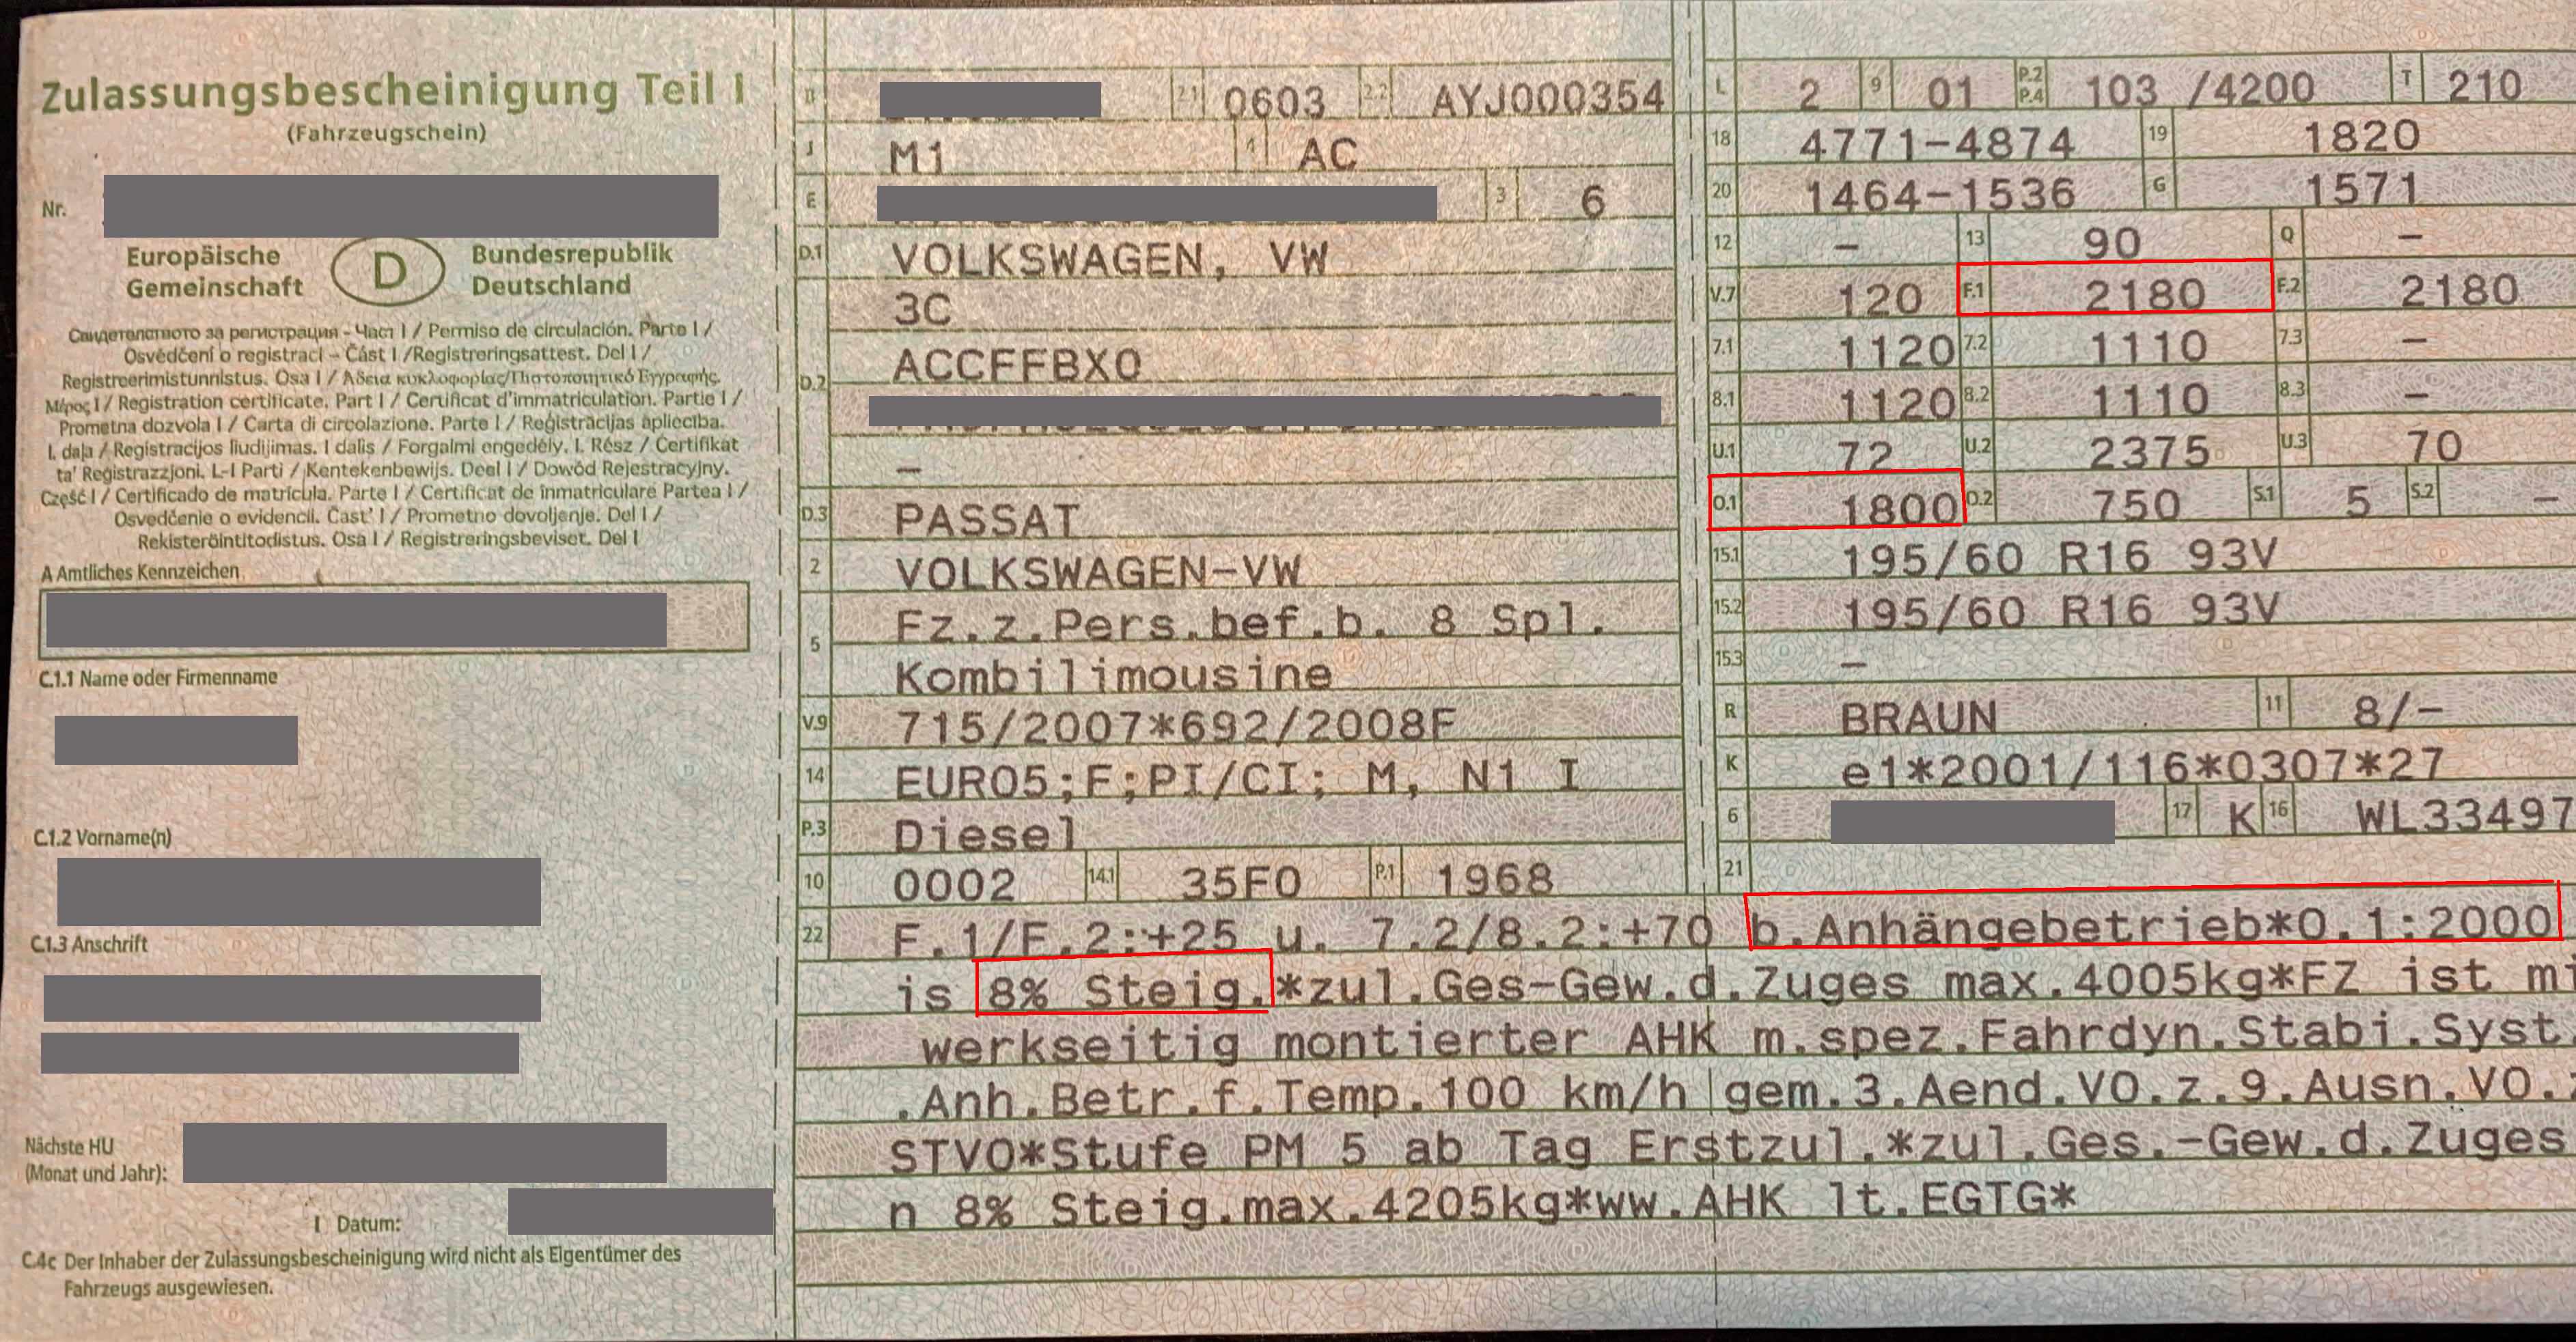 Zulassungsbescheinigung Teil I
(Fahrzeugschein)
Nr.
Europäische Gemeinschaft
D
Bundesrepublik Deutschland
Свидетелството за регистрация - Част I / Permiso de circulación. Parte I /
Osvědčení o registraci – Část I /Registreringsattest. Del I /
Registreerimistunnistus. Osa I / Άδεια κυκλοφορίας/Πιστοποιητικό Εγγραφής.
Μέρος I / Registration certificate. Part I / Certificat d'immatriculation. Partie I /
Prometna dozvola I / Carta di circolazione. Parte I / Reģistrācijas apliecība.
I. daļa / Registracijos liudijimas. I dalis / Forgalmi engedély. I. Rész / Ċertifikat
ta' Reġistrazzjoni. L-I Parti / Kentekenbewijs. Deel I / Dowód Rejestracyjny.
Część I / Certificado de matrícula. Parte I / Certificat de înmatriculare Partea I /
Osvedčenie o evidencii. Časť I / Prometno dovoljenje. Del I /
Rekisteröintitodistus. Osa I / Registreringsbeviset. Del I
A Amtliches Kennzeichen
C.1.1 Name oder Firmenname
C.1.2 Vorname(n)
C.1.3 Anschrift
Nächste HU
(Monat und Jahr):
I Datum:
C.4c Der Inhaber der Zulassungsbescheinigung wird nicht als Eigentümer des
Fahrzeugs ausgewiesen.
B 2.1 0603 2.2 AYJ000354
J M1 4 AC
E 3 6
D.1 VOLKSWAGEN, VW
3C
D.2 ACCFFBX0
–
D.3 PASSAT
2 VOLKSWAGEN-VW
5 Fz.z.Pers.bef.b. 8 Spl.
Kombilimousine
V.9 715/2007*692/2008F
14 EURO5;F;PI/CI; M, N1 I
P.3 Diesel
10 0002 14.1 35F0 P.1 1968
L 2 9 01 P.2 P.4 103 /4200 T 210
18 4771-4874 19 1820
20 1464-1536 G 1571
12 – 13 90 Q –
V.7 120 F.1 2180 F.2 2180
7.1 1120 7.2 1110 7.3 –
8.1 1120 8.2 1110 8.3 –
U.1 72 U.2 2375 U.3 70
O.1 1800 O.2 750 S.1 5 S.2 –
15.1 195/60 R16 93V
15.2 195/60 R16 93V
15.3 –
R BRAUN 11 8/–
K e1*2001/116*0307*27
6 17 K 16 WL33497
21
22 F.1/F.2:+25 u. 7.2/8.2:+70 b.Anhängebetrieb*O.1:2000
is 8% Steig.*zul.Ges-Gew.d.Zuges max.4005kg*FZ ist mi
werkseitig montierter AHK m.spez.Fahrdyn.Stabi.Syst.
.Anh.Betr.f.Temp.100 km/h gem.3.Aend.VO.z.9.Ausn.VO.
STVO*Stufe PM 5 ab Tag Erstzul.*zul.Ges.-Gew.d.Zuges
n 8% Steig.max.4205kg*ww.AHK lt.EGTG*